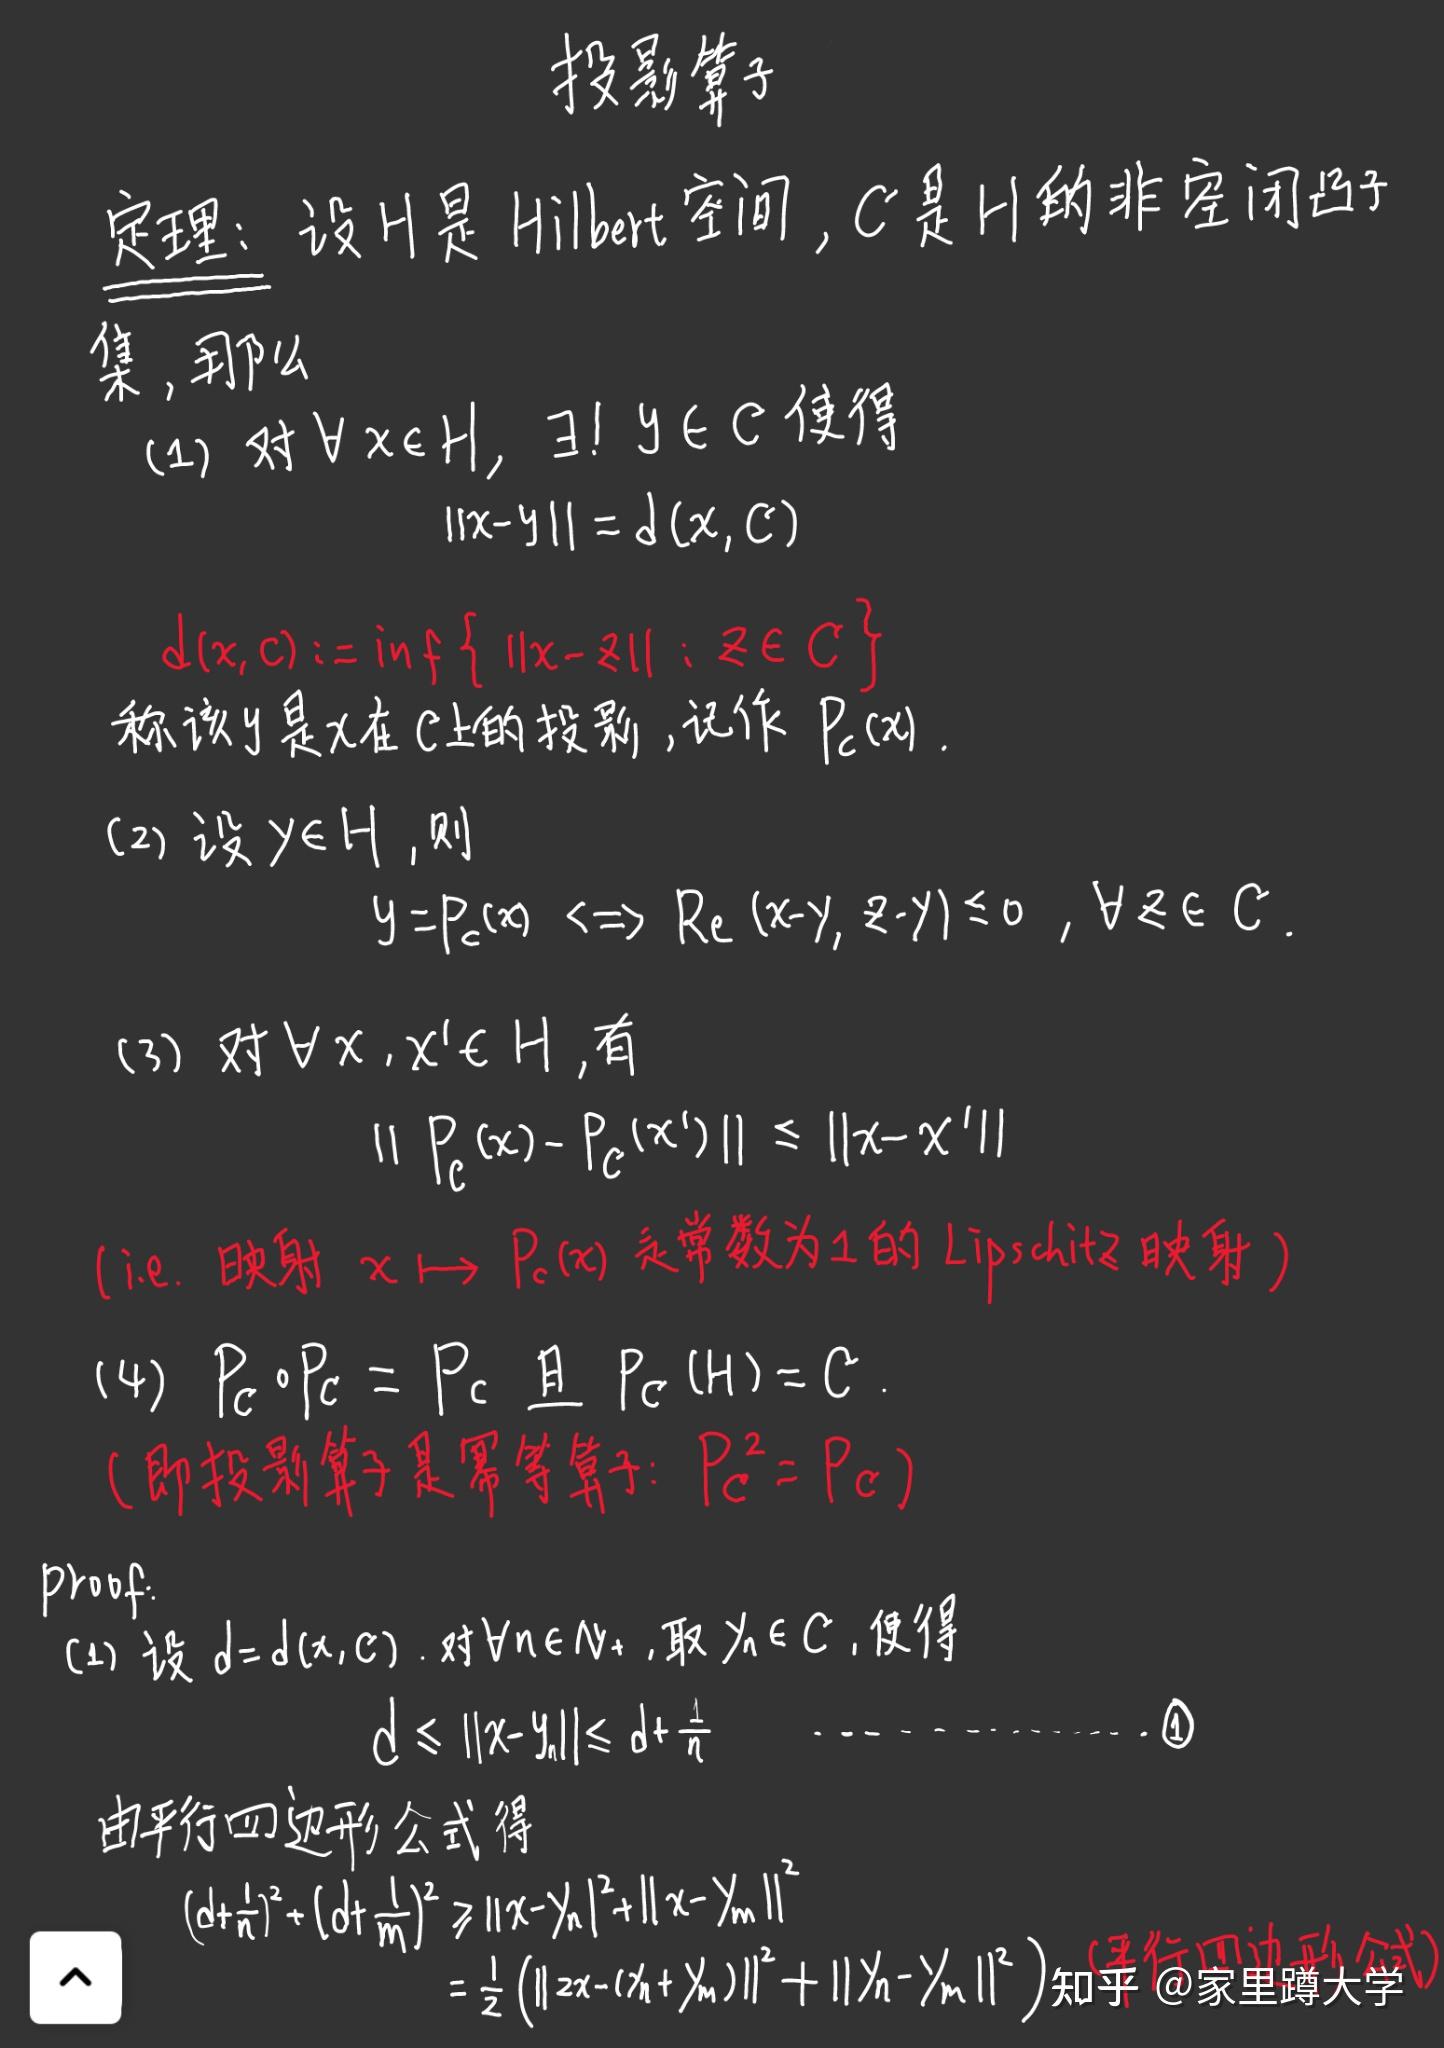 投影算子
定理: 设H是Hilbert空间, C是H的非空闭凸子
集, 那么
(1) 对∀x∈H, ∃! y∈C使得
||x-y||=d(x,C)
d(x,C):=inf{||x-z||: z∈C}
称该y是x在C上的投影,记作 P_C(x).
(2) 设y∈H,则
y=P_C(x) <=> Re(x-y, z-y)≤0, ∀z∈C.
(3) 对∀x,x'∈H,有
||P_C(x)-P_C(x')||≤||x-x'||
(i.e. 映射 x↦P_C(x) 是常数为1的Lipschitz映射)
(4) P_C∘P_C=P_C 且 P_C(H)=C.
(即投影算子是幂等算子: P_C²=P_C)
proof:
(1) 设 d=d(x,C). 对∀n∈N₊,取 y_n∈C,使得
d≤||x-y_n||≤d+1/n ..............①
由平行四边形公式得
(d+1/n)²+(d+1/m)²≥||x-y_n|²+||x-y_m||²
=1/2(||2x-(y_n+y_m)||²+||y_n-y_m||²) (平行四边形公式)
知乎 @家里蹲大学